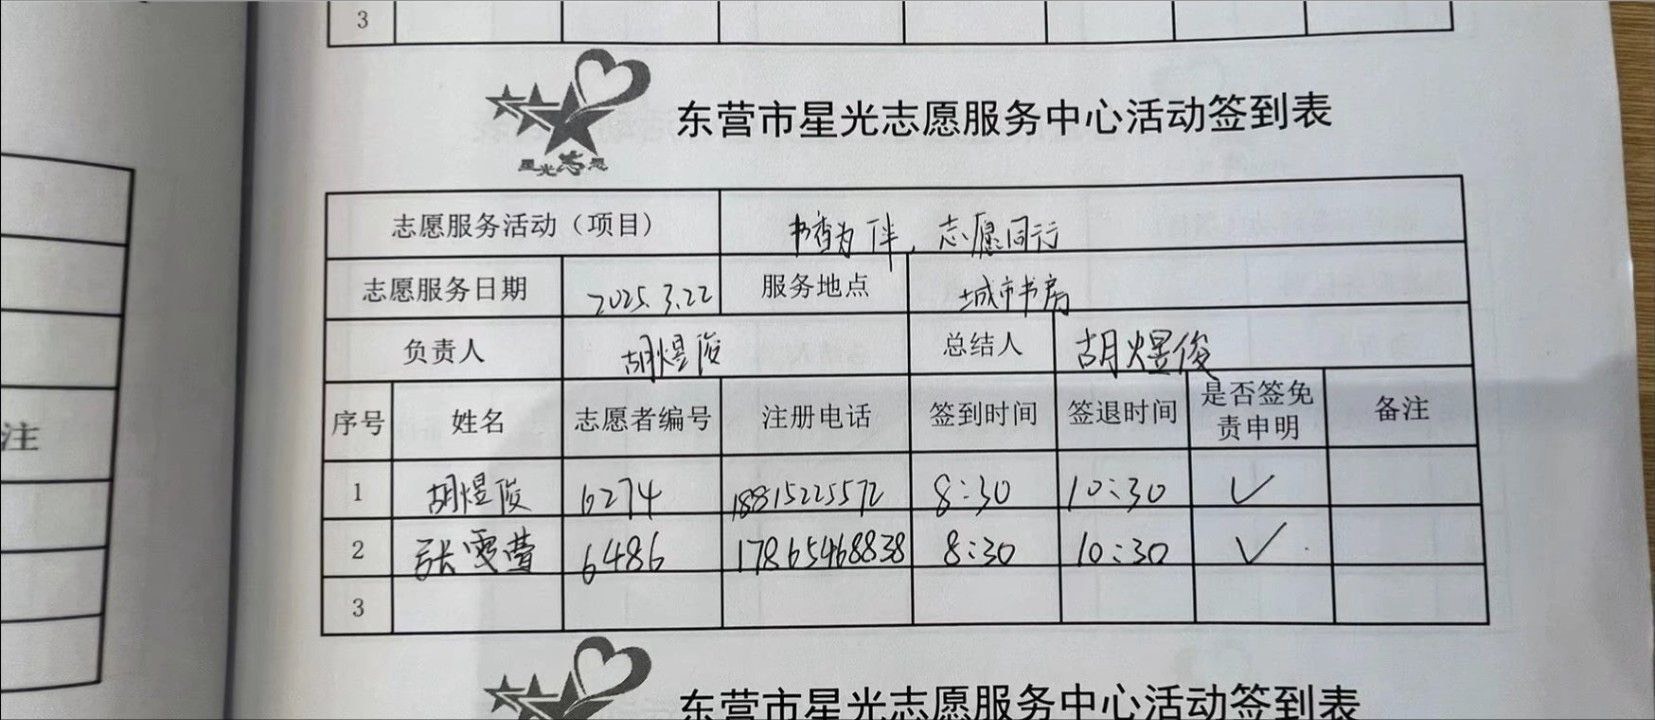 3
星光志愿
东营市星光志愿服务中心活动签到表
志愿服务活动（项目） 书香为伴，志愿同行
志愿服务日期 2025.3.22 服务地点 城市书房
负责人 胡煜俊 总结人 胡煜俊
序号 姓名 志愿者编号 注册电话 签到时间 签退时间 是否签免责申明 备注
1 胡煜俊 6274 18815225572 8:30 10:30 ✓
2 张雯 6486 17865468838 8:30 10:30 ✓
3
注
东营市星光志愿服务中心活动签到表